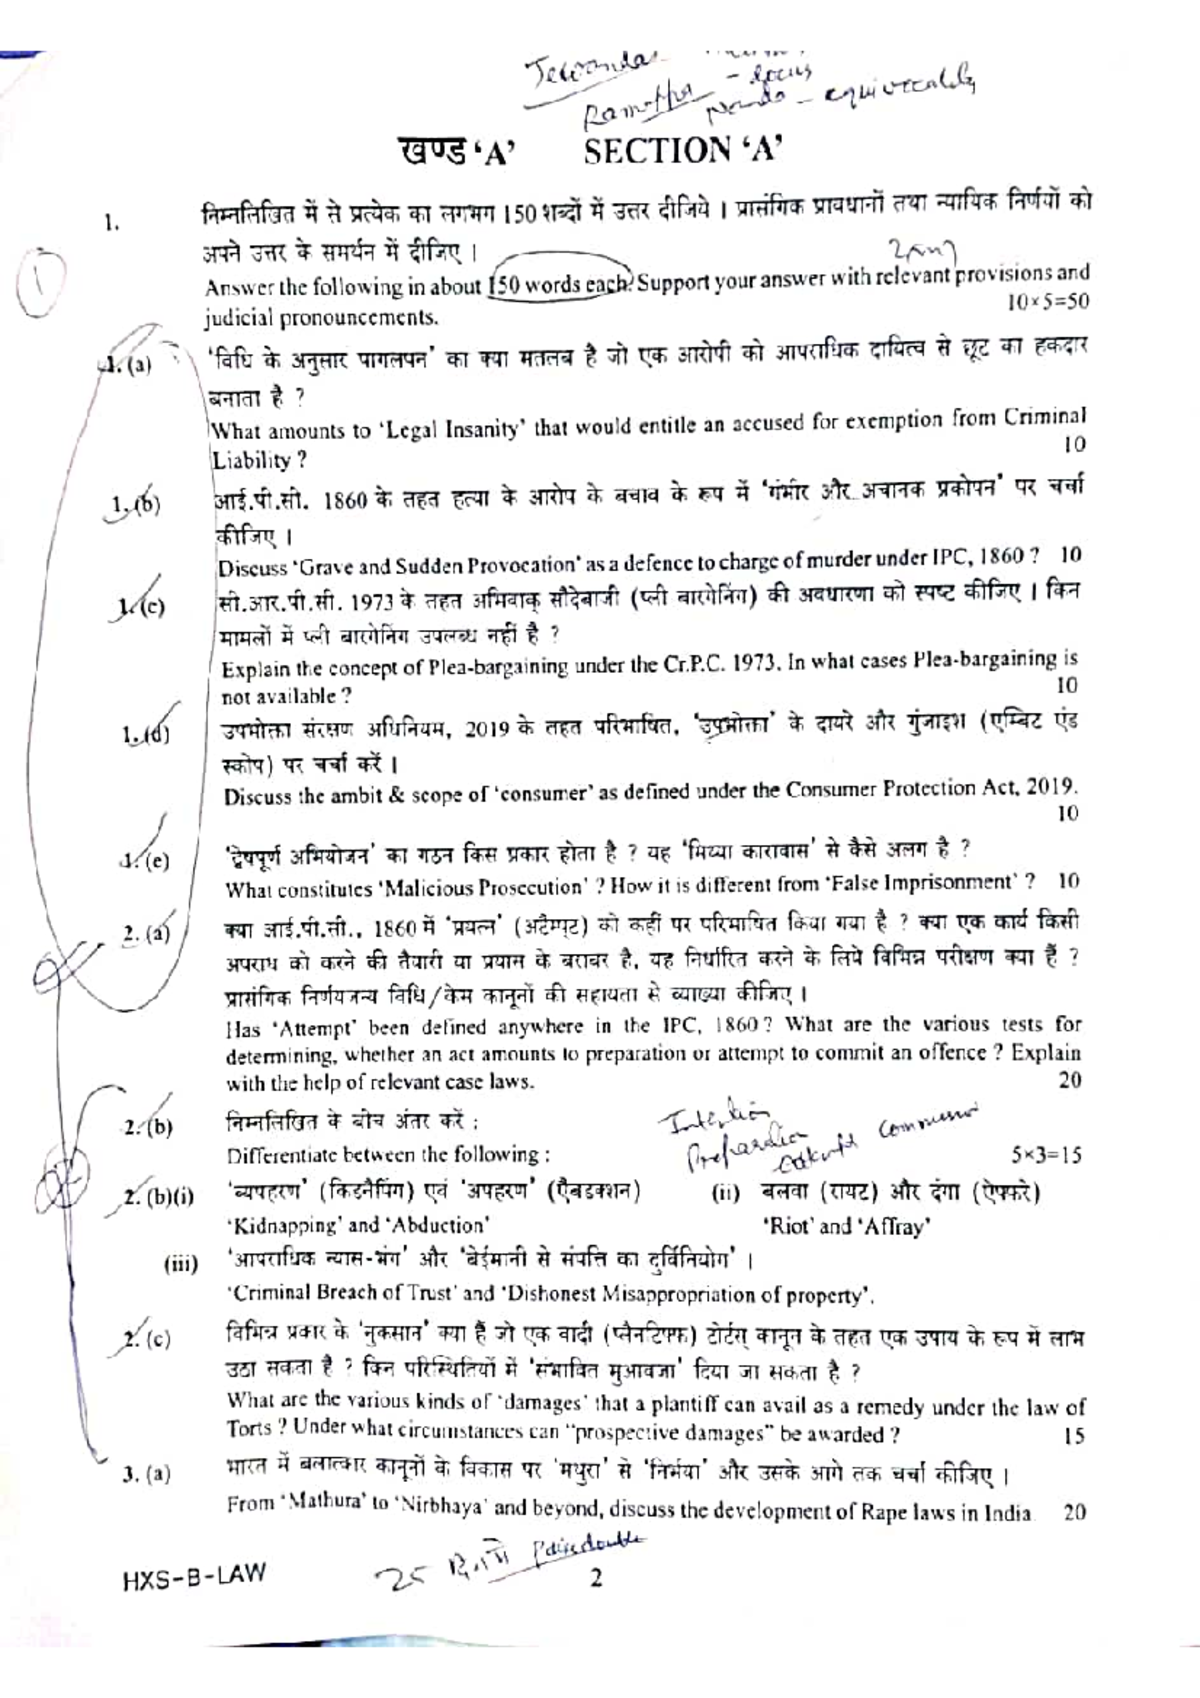 Ramappa - locus
- equivocality
खण्ड 'A' SECTION 'A'
1. निम्नलिखित में से प्रत्येक का लगभग 150 शब्दों में उत्तर दीजिये । प्रासंगिक प्रावधानों तथा न्यायिक निर्णयों को
अपने उत्तर के समर्थन में दीजिए ।
Answer the following in about 150 words each. Support your answer with relevant provisions and
judicial pronouncements. 10×5=50
1. (a) 'विधि के अनुसार पागलपन' का क्या मतलब है जो एक आरोपी को आपराधिक दायित्व से छूट का हकदार
बनाता है ?
What amounts to 'Legal Insanity' that would entitle an accused for exemption from Criminal
Liability ? 10
1. (b) आई.पी.सी. 1860 के तहत हत्या के आरोप के बचाव के रूप में 'गंभीर और अचानक प्रकोपन' पर चर्चा
कीजिए ।
Discuss 'Grave and Sudden Provocation' as a defence to charge of murder under IPC, 1860 ? 10
1. (c) सी.आर.पी.सी. 1973 के तहत अभिवाक् सौदेबाजी (प्ली बारगेनिंग) की अवधारणा को स्पष्ट कीजिए । किन
मामलों में प्ली बारगेनिंग उपलब्ध नहीं है ?
Explain the concept of Plea-bargaining under the Cr.P.C. 1973. In what cases Plea-bargaining is
not available ? 10
1. (d) उपभोक्ता संरक्षण अधिनियम, 2019 के तहत परिभाषित, 'उपभोक्ता' के दायरे और गुंजाइश (एम्बिट एंड
स्कोप) पर चर्चा करें ।
Discuss the ambit & scope of 'consumer' as defined under the Consumer Protection Act, 2019.
10
1. (e) 'द्वेषपूर्ण अभियोजन' का गठन किस प्रकार होता है ? यह 'मिथ्या कारावास' से कैसे अलग है ?
What constitutes 'Malicious Prosecution' ? How it is different from 'False Imprisonment' ? 10
2. (a) क्या आई.पी.सी., 1860 में 'प्रयत्न' (अटैम्प्ट) को कहीं पर परिभाषित किया गया है ? क्या एक कार्य किसी
अपराध को करने की तैयारी या प्रयास के बराबर है, यह निर्धारित करने के लिये विभिन्न परीक्षण क्या हैं ?
प्रासंगिक निर्णयजन्य विधि/केस कानूनों की सहायता से व्याख्या कीजिए ।
Has 'Attempt' been defined anywhere in the IPC, 1860 ? What are the various tests for
determining, whether an act amounts to preparation or attempt to commit an offence ? Explain
with the help of relevant case laws. 20
Intention
Preparation
2. (b) निम्नलिखित के बीच अंतर करें :
Differentiate between the following : 5×3=15
2. (b)(i) 'व्यपहरण' (किडनैपिंग) एवं 'अपहरण' (ऐबडक्शन) (ii) बलवा (रायट) और दंगा (ऐफ्फरे)
'Kidnapping' and 'Abduction' 'Riot' and 'Affray'
(iii) 'आपराधिक न्यास-भंग' और 'बेईमानी से संपत्ति का दुर्विनियोग' ।
'Criminal Breach of Trust' and 'Dishonest Misappropriation of property'.
2. (c) विभिन्न प्रकार के 'नुकसान' क्या हैं जो एक वादी (प्लैनटिफ्फ) टोर्टस् कानून के तहत एक उपाय के रूप में लाभ
उठा सकता है ? किन परिस्थितियों में 'संभावित मुआवजा' दिया जा सकता है ?
What are the various kinds of 'damages' that a plantiff can avail as a remedy under the law of
Torts ? Under what circumstances can "prospective damages" be awarded ? 15
3. (a) भारत में बलात्कार कानूनों के विकास पर 'मथुरा' से 'निर्भया' और उसके आगे तक चर्चा कीजिए ।
From 'Mathura' to 'Nirbhaya' and beyond, discuss the development of Rape laws in India. 20
HXS-B-LAW 2